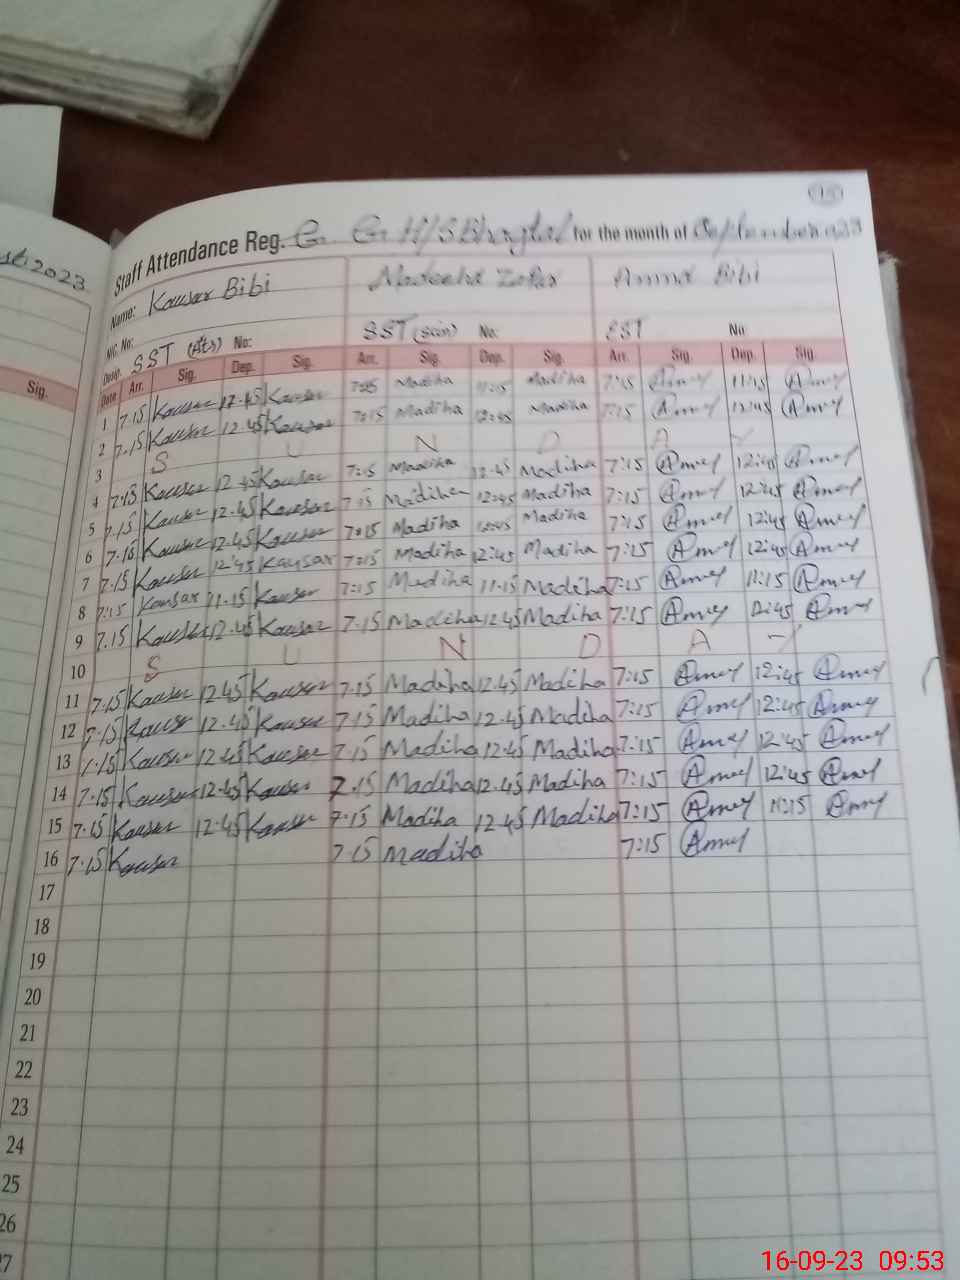 15
st 2023
Staff Attendance Reg. G. G. H/S for the month of September 2023
Name: Kousar Bibi Madeeha Zafar Amna Bibi
N/C. No:
Desig. SST (Arts) No: SST (Scin) No: EST No
Sig. Date Arr. Sig. Dep. Sig. Arr. Sig. Dep. Sig. Arr. Sig. Dep. Sig.
1 7.15 Kousar 12.45 Kousar 7:15 Madiha 11:15 Madiha 7:15 Amey 11:15 Amey
2 7.15 Kousar 12.45 Kousar 7:15 Madiha 12:45 Madiha 7:15 Amey 12:45 Amey
3 S U N D A Y
4 7.15 Kousar 12.45 Kousar 7:15 Madiha 12.45 Madiha 7:15 Amey 12:45 Amey
5 7.15 Kousar 12.45 Kousar 7.15 Madiha 12:45 Madiha 7:15 Amey 12:45 Amey
6 7.15 Kousar 12.45 Kousar 7:15 Madiha 12:45 Madiha 7:15 Amey 12:45 Amey
7 7.15 Kousar 12.45 Kausar 7:15 Madiha 12:45 Madiha 7:15 Amey 12:45 Amey
8 7:15 Kousar 11.15 Kousar 7:15 Madiha 11.15 Madiha 7:15 Amey 11:15 Amey
9 7.15 Kousar 12.45 Kousar 7.15 Madiha 12.45 Madiha 7:15 Amey 12:45 Amey
10 S U N D A Y
11 7.15 Kousar 12.45 Kousar 7.15 Madiha 12.45 Madiha 7:15 Amey 12:45 Amey
12 7.15 Kousar 12.45 Kousar 7.15 Madiha 12.45 Madiha 7:15 Amey 12:45 Amey
13 7.15 Kousar 12.45 Kousar 7.15 Madiha 12.45 Madiha 7:15 Amey 12:45 Amey
14 7.15 Kousar 12.45 Kousar 7.15 Madiha 12.45 Madiha 7:15 Amey 12:45 Amey
15 7.15 Kousar 12.45 Kousar 7.15 Madiha 12.45 Madiha 7:15 Amey 11:15 Amey
16 7.15 Kousar 7.15 Madiha 7:15 Amey
17
18
19
20
21
22
23
24
25
26
27
16-09-23 09:53